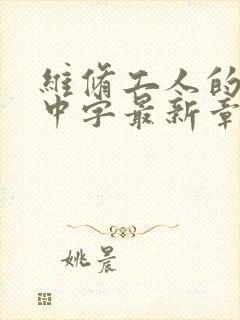 維脩工人的
中字最新章
姚晨